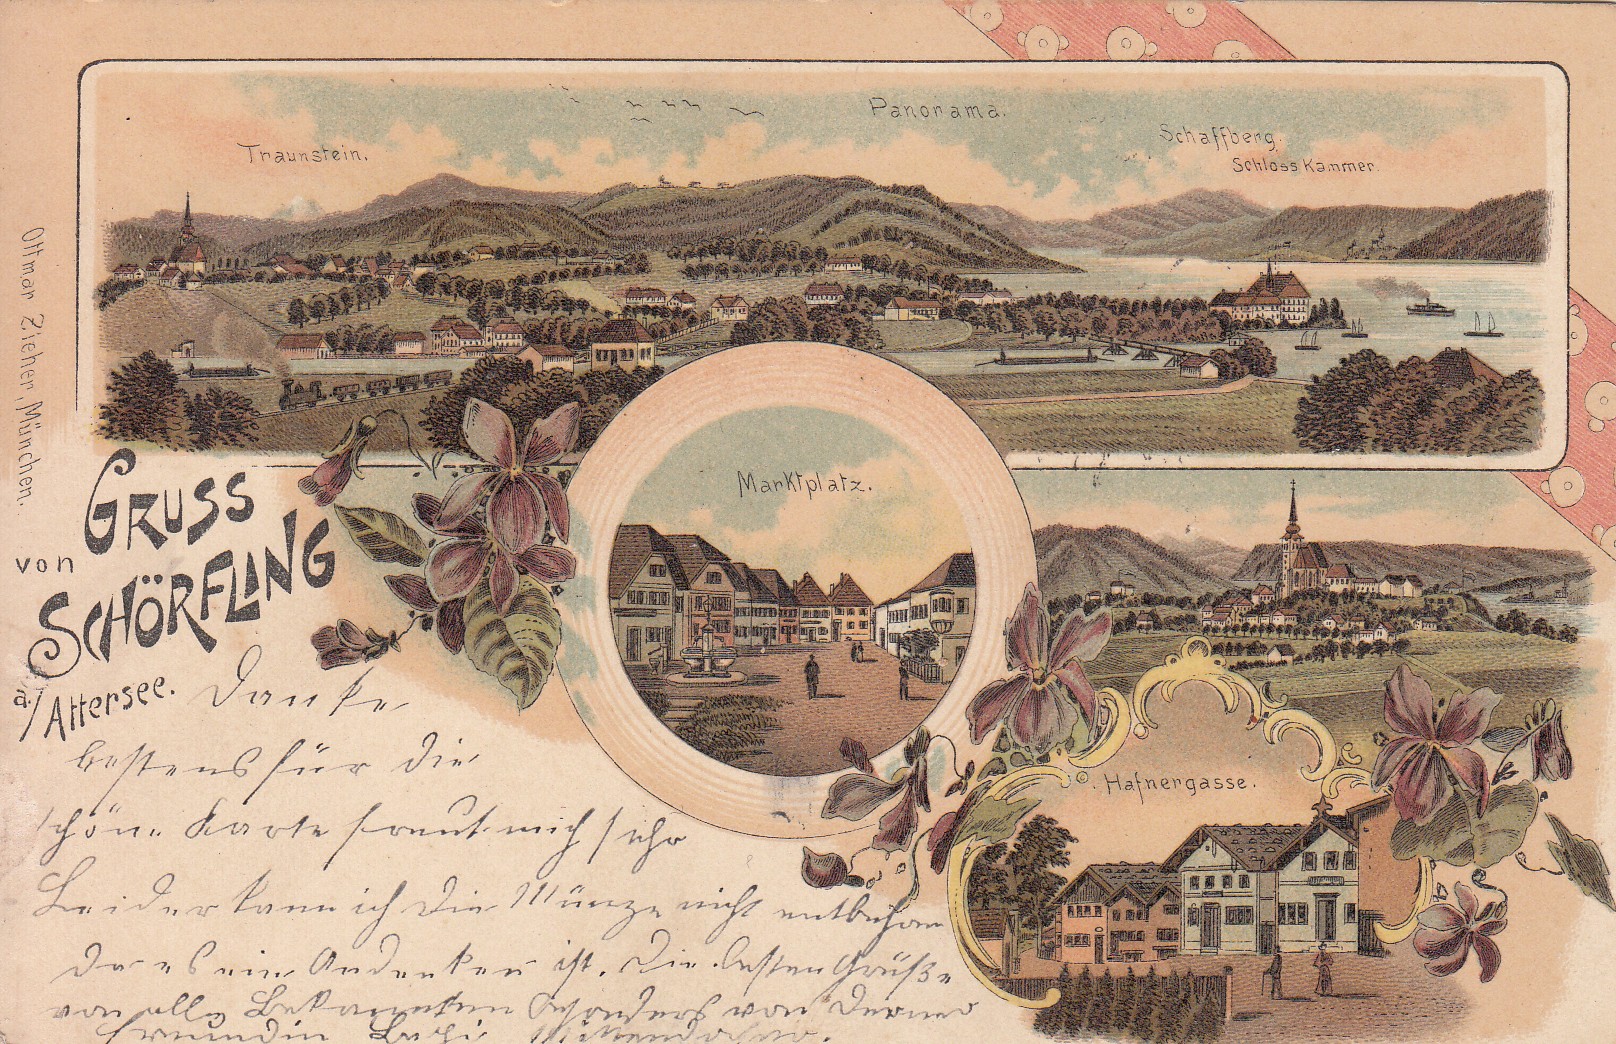 Panorama.
Traunstein.
Schaffberg.
Schloss Kammer.
Ottmar Zieher, München.
GRUSS
von
SCHÖRFLING
a./Attersee.
Marktplatz.
Hafnergasse.
Danke
bestens für die
schöne Karte freut mich sehr
Leider kann ich die Münze nicht entbehren
da es ein Andenken ist. Die besten Grüße
von alle Bekannten besonders von Deiner
Freundin